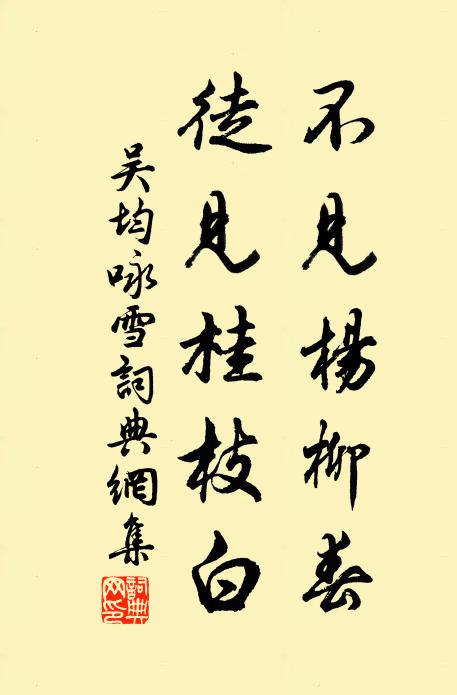 不見楊柳春
徒見桂枝白
吴均咏雪詞典網集
詞典網印